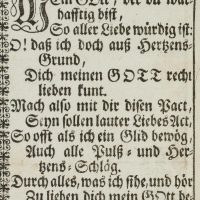 Ein GOtt, der du war-
hafftig bist,
So aller Liebe würdig ist:
O! daß ich doch auß Hertzens-
Grund,
Dich meinen GOTT recht
lieben kunt.
Mach also mit dir disen Pact,
Seyn sollen lauter Liebes Act,
So offt als ich ein Glid bewög,
Auch alle Pulß- und Her-
tzens-Schläg.
Durch alles, was ich sihe, und hör
Zu lieben dich mein GOtt be